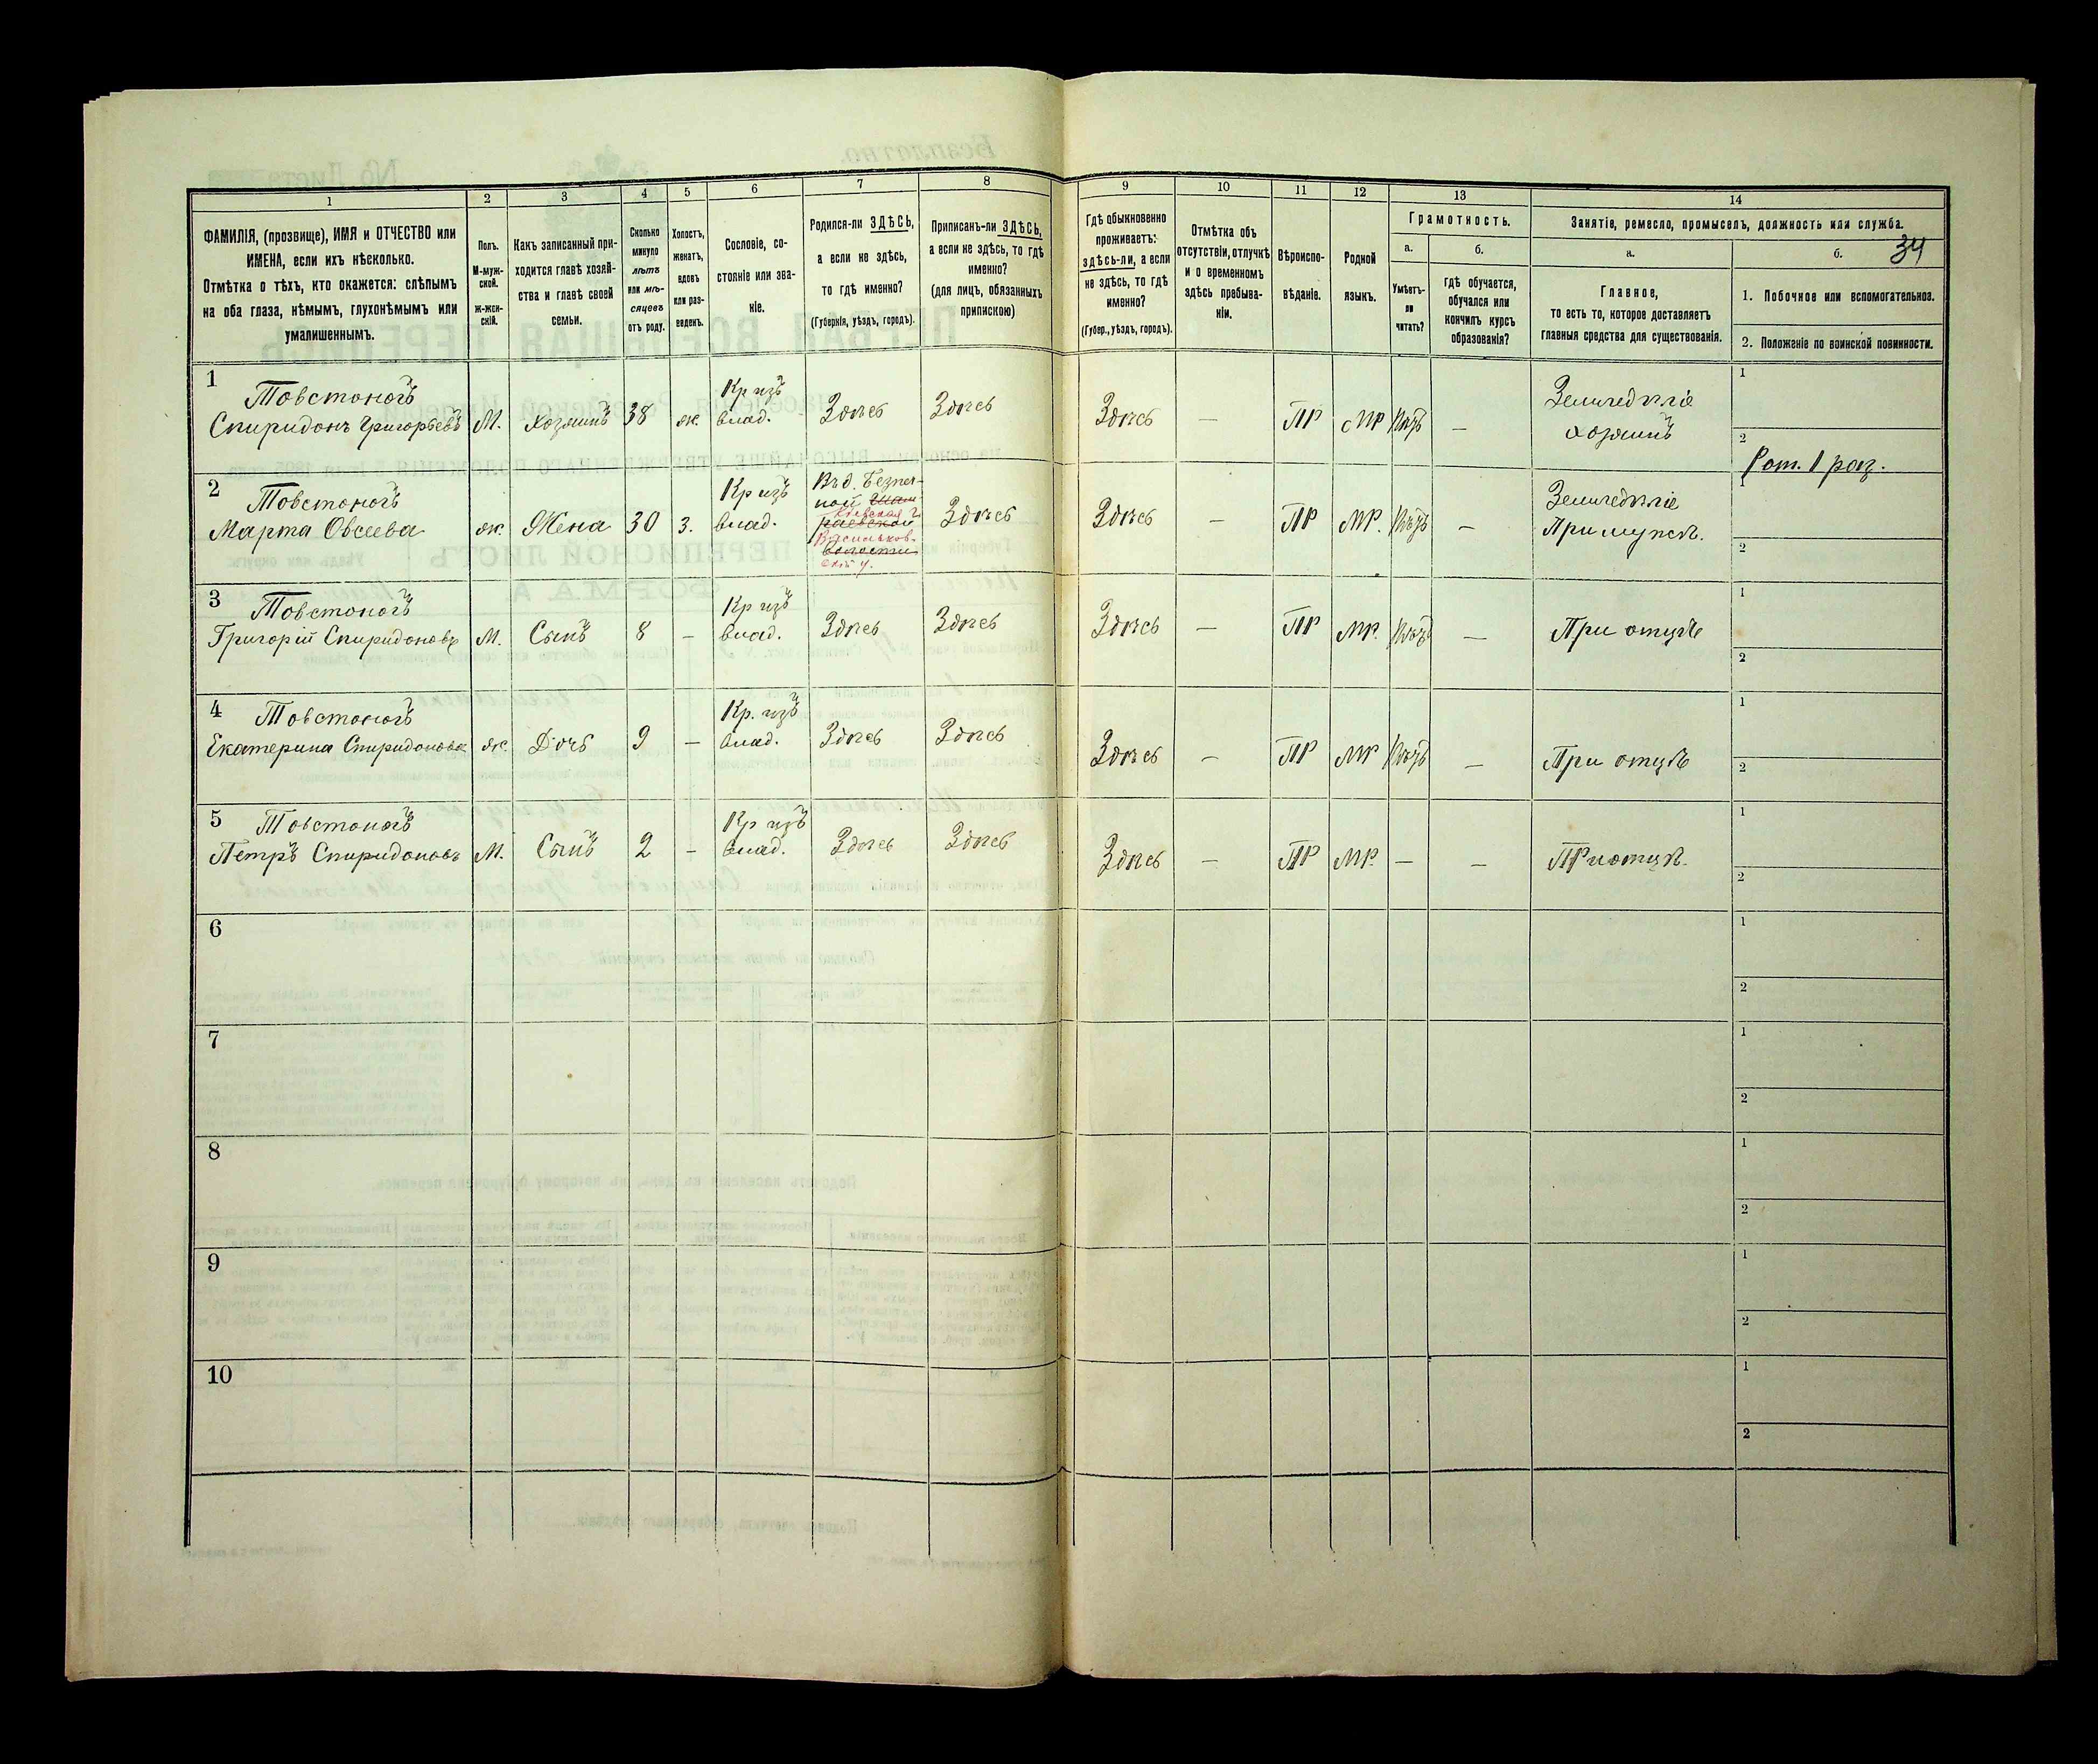 1 2 3 4 5 6 7 8 9 10 11 12 13 14
ФАМИЛІЯ, (прозвище), ИМЯ и ОТЧЕСТВО или
ИМЕНА, если ихъ нѣсколько.
Отмѣтка о тѣхъ, кто окажется: слѣпымъ
на оба глаза, нѣмымъ, глухонѣмымъ или
умалишеннымъ.
Полъ.
М-муж-
ской.
ж-жен-
скій.
Какъ записанный при-
ходится главѣ хозяй-
ства и главѣ своей
семьи.
Сколько
минуло
лѣтъ
или мѣ-
сяцевъ
отъ роду.
Холостъ,
женатъ,
вдовъ
или раз-
веденъ.
Сословіе, со-
стояніе или зва-
ніе.
Родился-ли ЗДѢСЬ,
а если не здѣсь,
то гдѣ именно?
(Губернія, уѣздъ, городъ).
Приписанъ-ли ЗДѢСЬ,
а если не здѣсь, то гдѣ
именно?
(для лицъ, обязанныхъ
припискою)
Гдѣ обыкновенно
проживаетъ:
здѣсь-ли, а если
не здѣсь, то гдѣ
именно?
(Губер., уѣздъ, городъ).
Отмѣтка объ
отсутствіи, отлучкѣ
и о временномъ
здѣсь пребыва-
ніи.
Вѣроиспо-
вѣданіе.
Родной
языкъ.
Грамотность.
а.
Умѣетъ-
ли
читать?
б.
Гдѣ обучается,
обучался или
кончилъ курсъ
образованія?
Занятіе, ремесло, промыселъ, должность или служба.
а.
Главное,
то есть то, которое доставляетъ
главныя средства для существованія.
б.
34
1. Побочное или вспомогательное.
2. Положеніе по воинской повинности.
1
Товстоногъ
Спиридонъ Григорьевъ
М.
Хозяинъ
38
ж.
Кр изъ
влад.
Здѣсь
Здѣсь
Здѣсь
—
ПР
МР
Нѣтъ
—
Земледѣліе
хозяинъ
1
2
Рат. 1 раз.
2
Товстоногъ
Марта Овсеева
ж.
Жена
30
З.
Кр изъ
влад.
Кіевская г.
Васильков-
волости
скій у.
Здѣсь
Здѣсь
—
ПР
МР.
Нѣтъ
—
Земледѣліе
При мужѣ.
1
2
3
Товстоногъ
Григорій Спиридоновъ
М.
Сынъ
8
—
Кр изъ
влад.
Здѣсь
Здѣсь
Здѣсь
—
ПР
МР.
Нѣтъ
—
При отцѣ
1
2
4
Товстоногъ
Екатерина Спиридонова
ж.
Дочь
9
—
Кр. изъ
влад.
Здѣсь
Здѣсь
Здѣсь
—
ПР
МР
Нѣтъ
—
При отцѣ
1
2
5
Товстоногъ
Петръ Спиридоновъ
М.
Сынъ
2
—
Кр изъ
влад.
Здѣсь
Здѣсь
Здѣсь
—
ПР
МР.
—
—
При отцѣ.
1
2
6
1
2
7
1
2
8
1
2
9
1
2
10
1
2